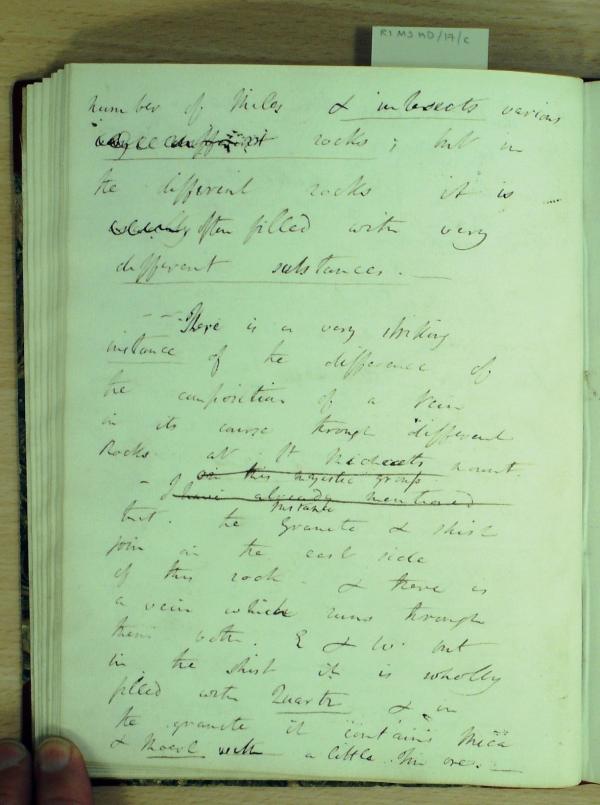 RI MS HD/17/c
number of Miles & intersects various
different rocks; but in
the different rocks it is
often filled with very
different substances. —
— There is a very striking
instance of the difference of
the composition of a vein
in its course through different
Rocks at St Michaels mount.
in this majestic group
– I have already mentioned
instance
that. the Granite & shist
join on the east side
of this rock. & there is
a vein which runs through
them both. E & W. but
in the shist it is wholly
filled with Quartz & in
the granite it contains Mica
& with a little Tin ore. —